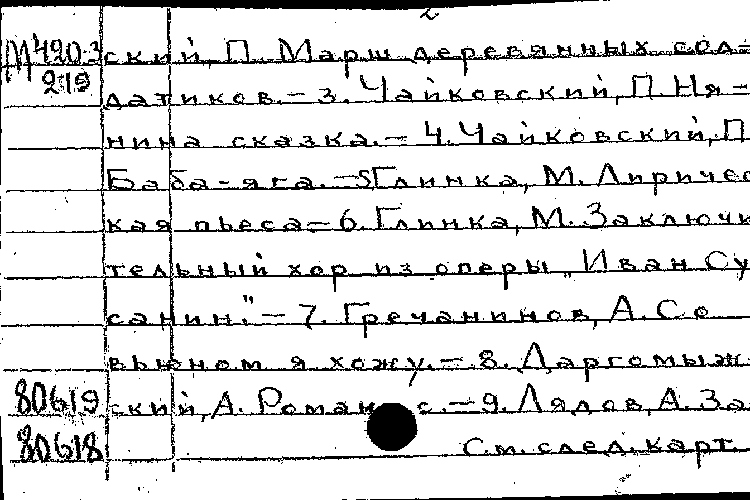 2
М420-3 ский, П. Марш деревянных сол-
219
датиков.- 3. Чайковский, П. Ня-
нина сказка.- 4. Чайковский, П.
Баба-яга.-5 Глинка, М. Лиричес
кая пьеса- 6. Глинка, М. Заключи
тельный хор из оперы „Иван Су
санин."- 7. Гречанинов, А. Со
вьюном я хожу.- 8. Даргомыж
80619 ский, А. Роман с.- 9. Лядов, А. За
80618 См. след. карт.